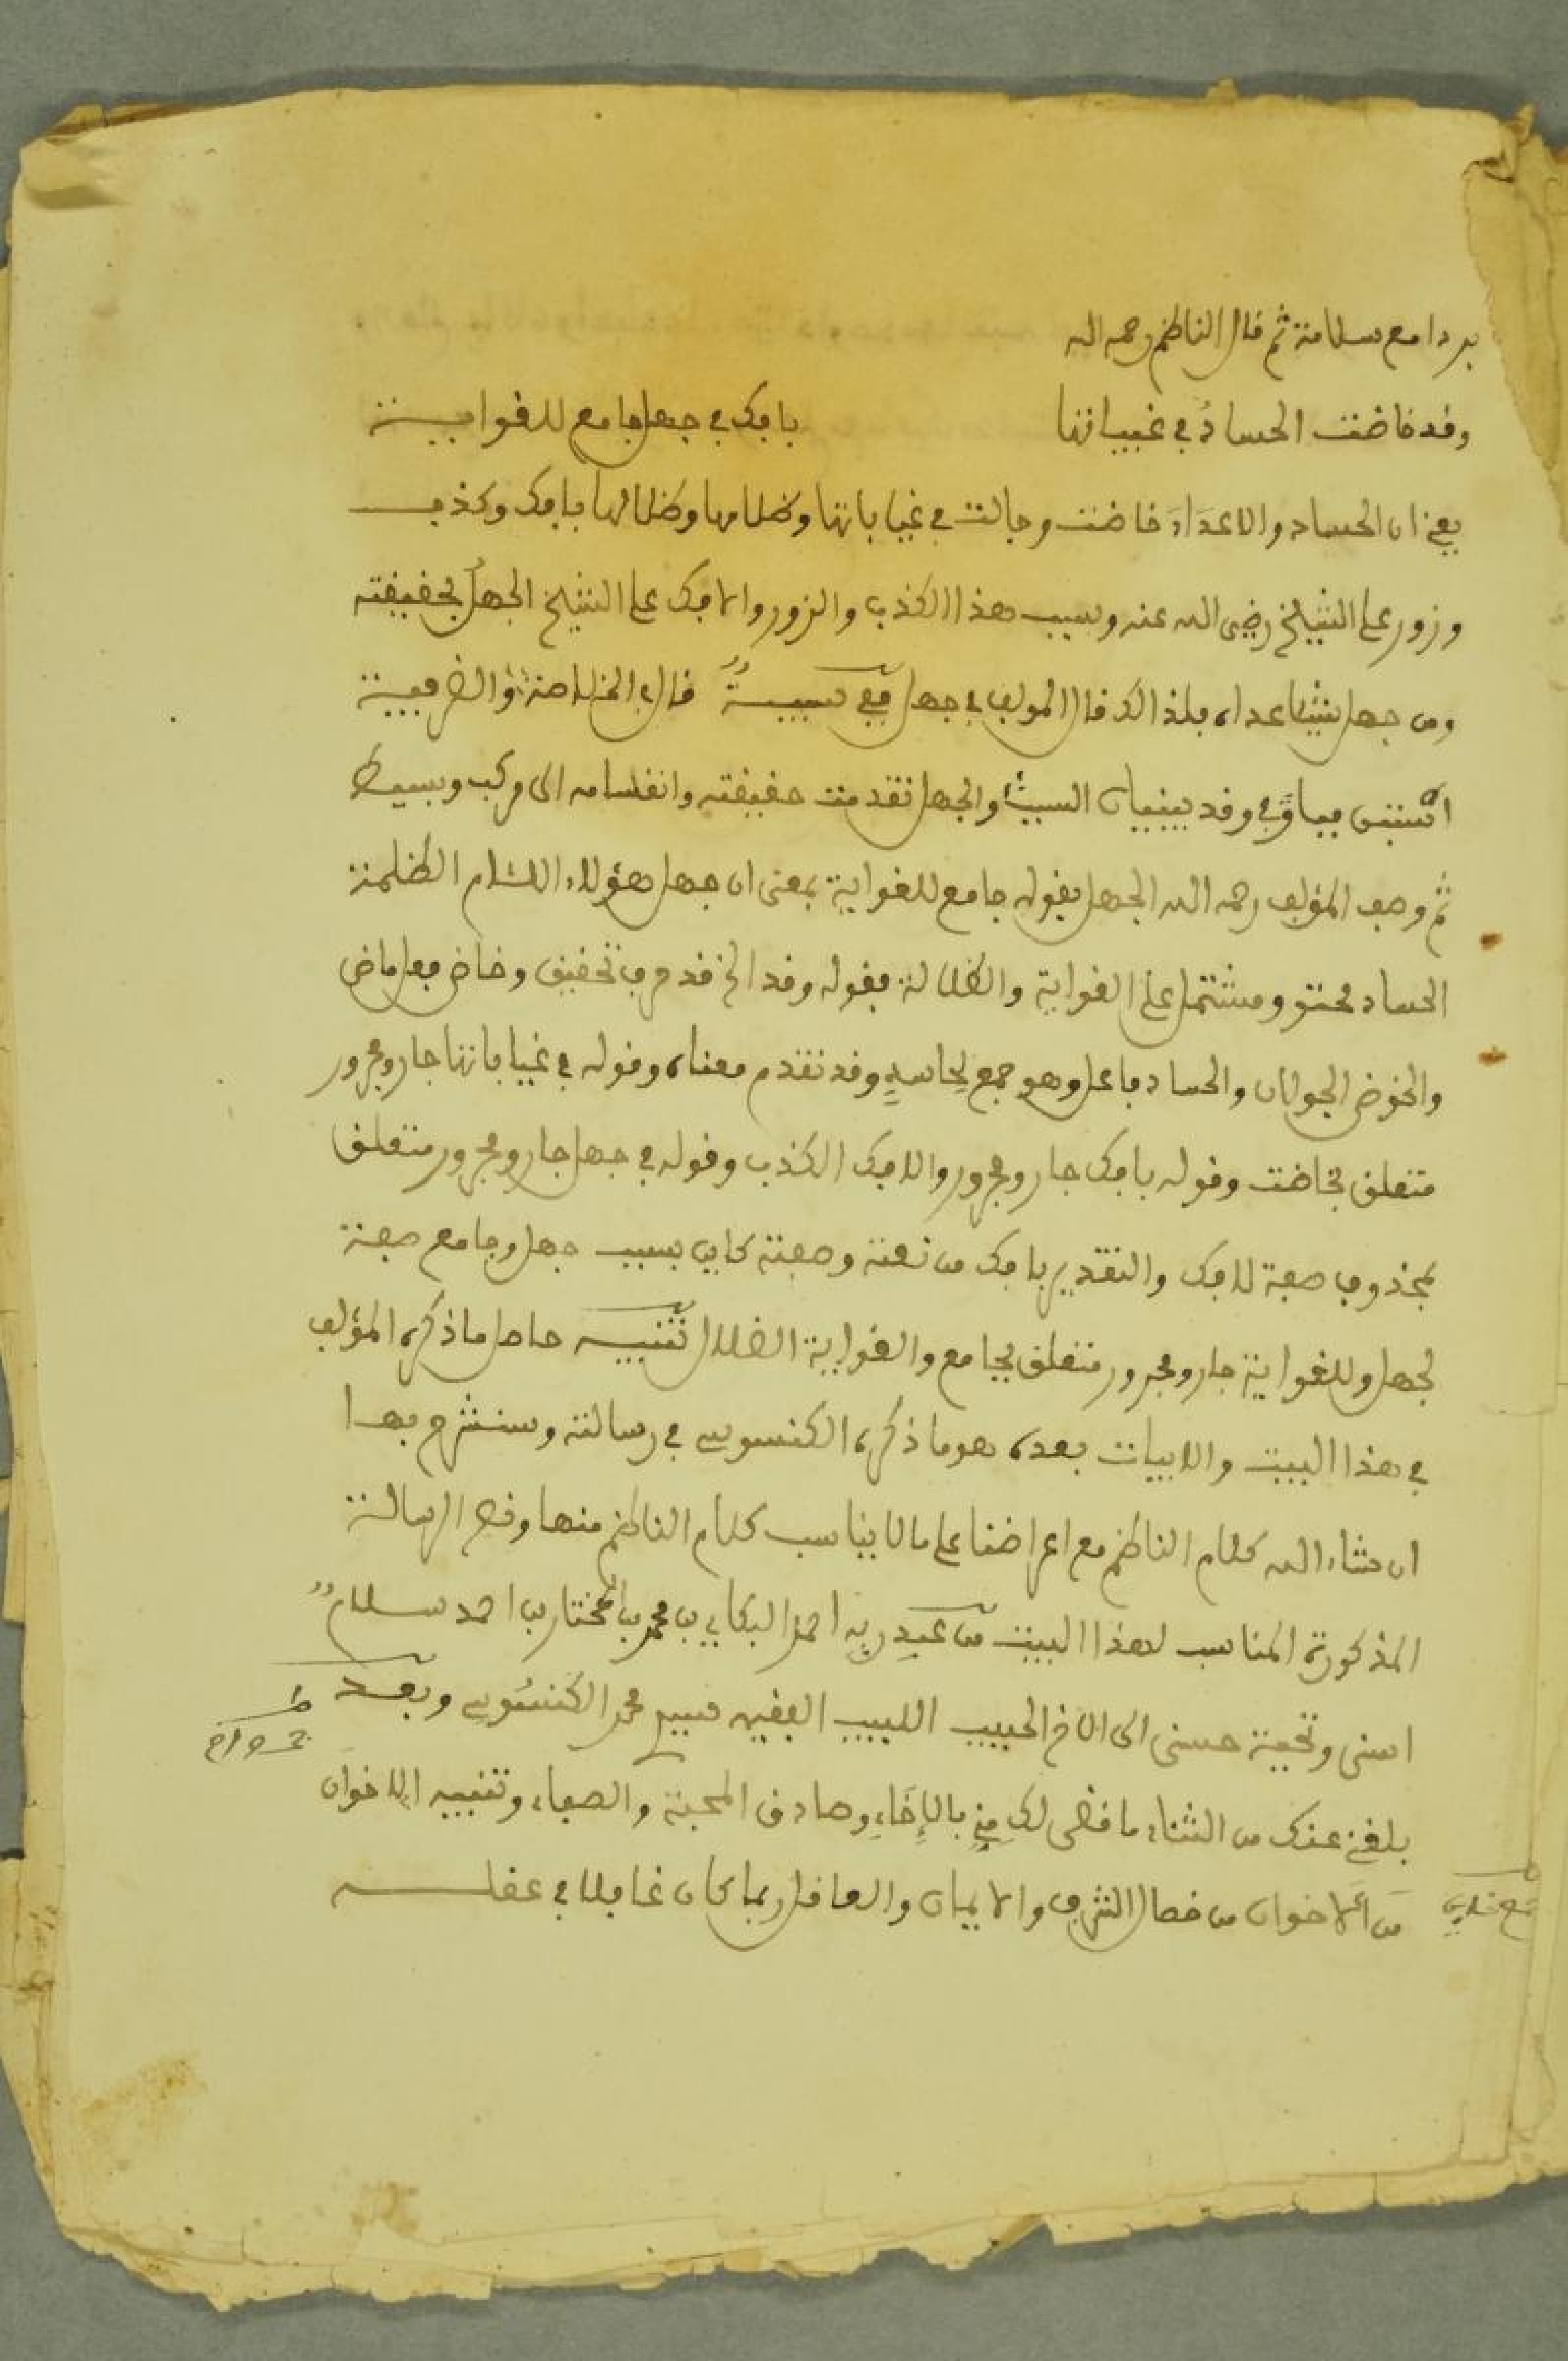 بردا مع سلامة ثم قال الناظم رحمه الله
وقد خاضت الحسادُ في غيباتها بافك في جهل جامع للغواية
يعني ان الحساد والاعداء خاضت وجالت في غياباتها وظلامها وظلالها بافك وكذب
وزور على الشيخ رضي الله عنه وسبب هذا الكذب والزور والافك على الشيخ الجهل بحقيقته
ومن جهل شيئا عداه فلذالك قال المولف في جهل ففي سببية قال في الخلاصة والظرفية
استبن ببا وفي وقد يبينان السببا والجهل تقدمت حقيقته وانقسامه الى مركب وبسيط
ثم وصف المؤلف رحمه الله الجهل بقوله جامع للغواية بمعنى ان جهل هؤلاء اللئام الظلمة
الحساد محتو ومشتمل على الغواية والظلالة فقوله وقد الخ قد حرف تحقيق وخاض فعل ماض
والخوض الجولان والحساد فاعل وهو جمع لحاسدٍ وقد تقدم معناه وقوله في غياباتها جار ومجرور
متعلق بخاضت وقوله بافك جار ومجرور والافك الكذب وقوله في جهل جار ومجرور متعلق
بمحذوف صفة لافك والتقدير بافك من نعته وصفته كاين بسبب جهل وجامع صفة
لجهل وللغواية جار ومجرور متعلق بجامع والغواية الضلال تنبيه حاصل ما ذكره المؤلف
في هذا البيت والابيات بعده هو ما ذكره الكنسوسي في رسالته وسنشرح بها
ان شاء الله كلام الناظم مع اعراضنا على ما لا يناسب كلام الناظم منها ونص الرسالة
المذكورة المناسب لهذا البيت من عبيد ربه احمد البكاي بن محمد بن المختار بن احمد سلام
اسنى وتحية حسنى الى الاخ الحبيب اللبيب الفقيه سيد محمد الكنسُوسي وبعد
بلغني عنك من الثناء ما قضى لك مني بالإخَاءِ وصادق المحبة والصفاء وتنبيه الاخوان
من الاخوان من خصال الشرف والايمان والعاقل ربما كان غافلا في عقله